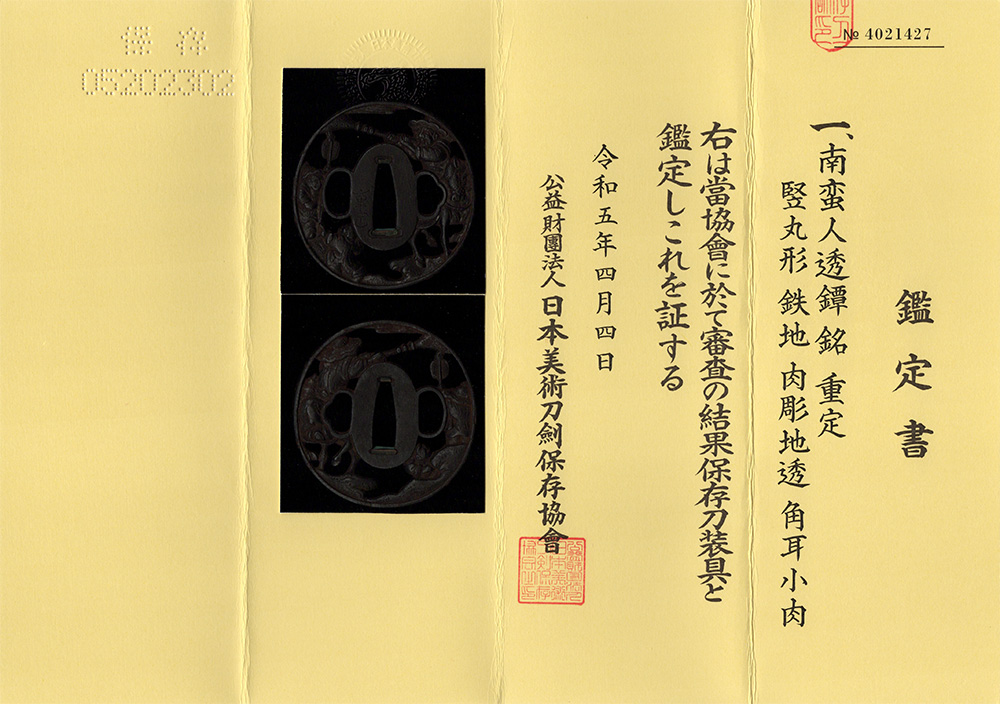 № 4021427
鑑定書
一、南蛮人透鐔 銘 重定
竪丸形 鉄地 肉彫地透 角耳小肉
右は當協會に於て審査の結果保存刀装具と
鑑定しこれを証する
令和五年四月四日
公益財團法人 日本美術刀劍保存協會
保存
05202302